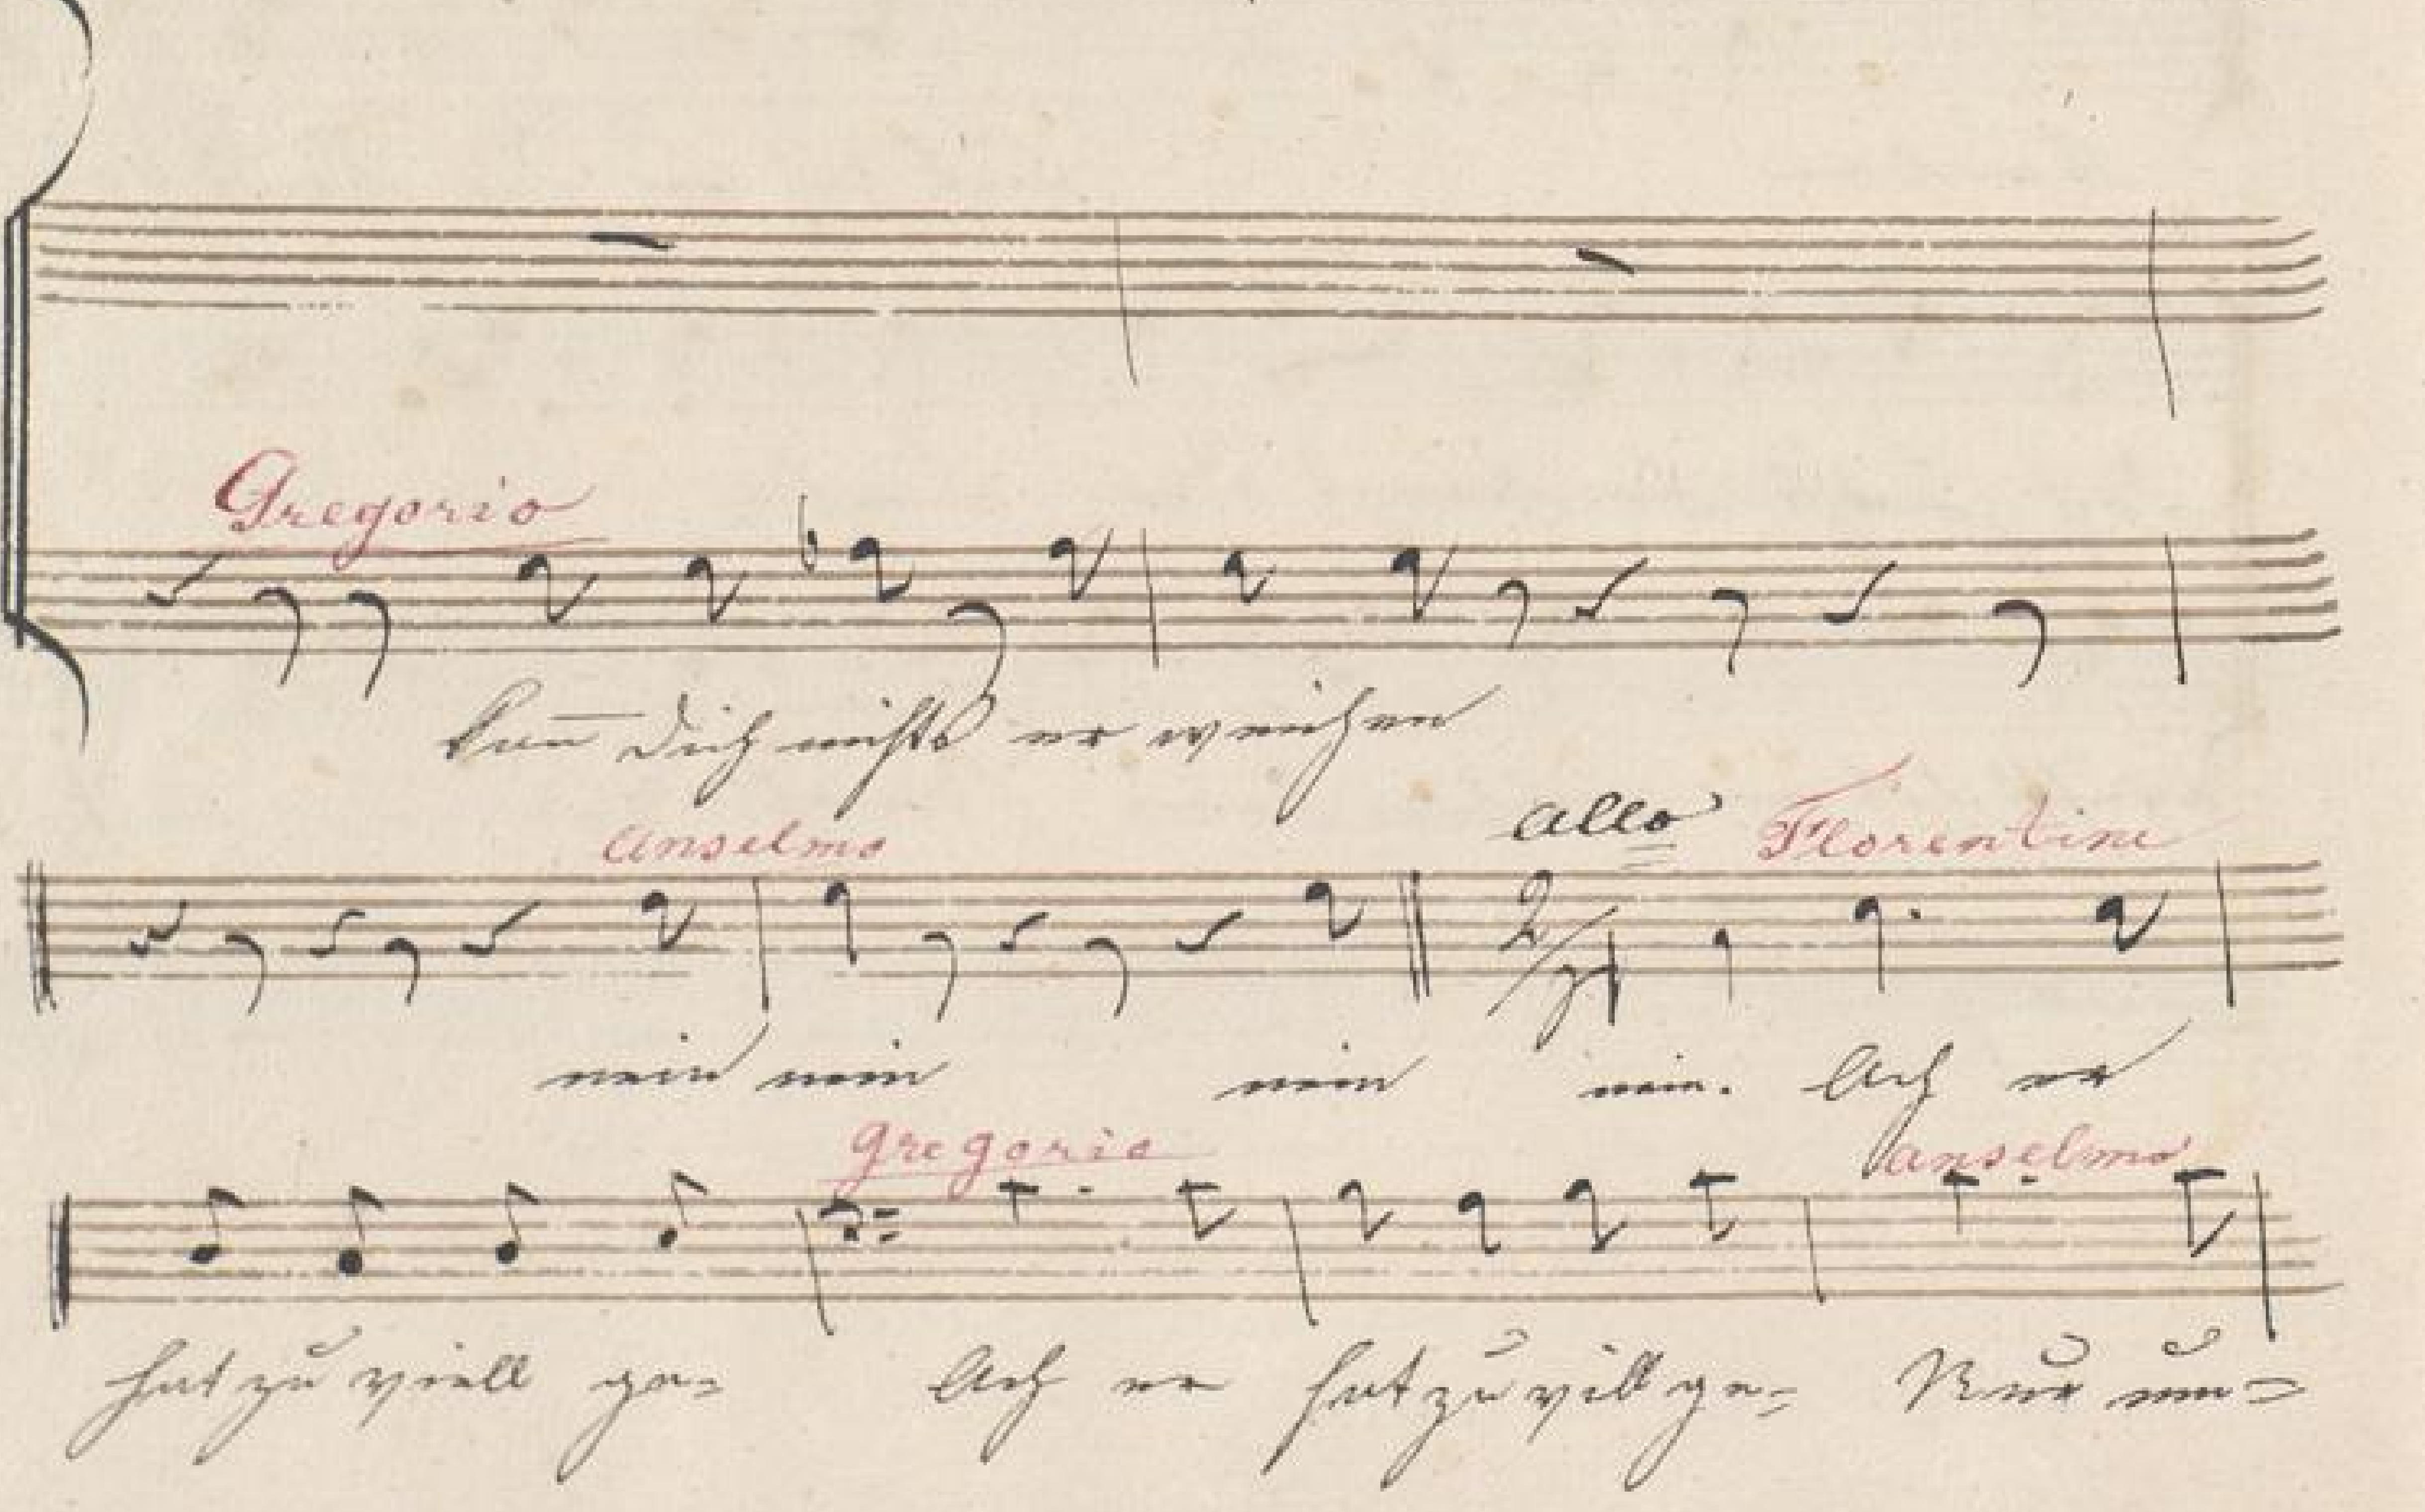 Gregorio
kan̅ dich nichts er weichen
Anselmo allo Florentine
nein nein nein nein. Ach er
gregorio anselmo
hat zu viell ge= Ach er hat zu vill ge= Nur um=